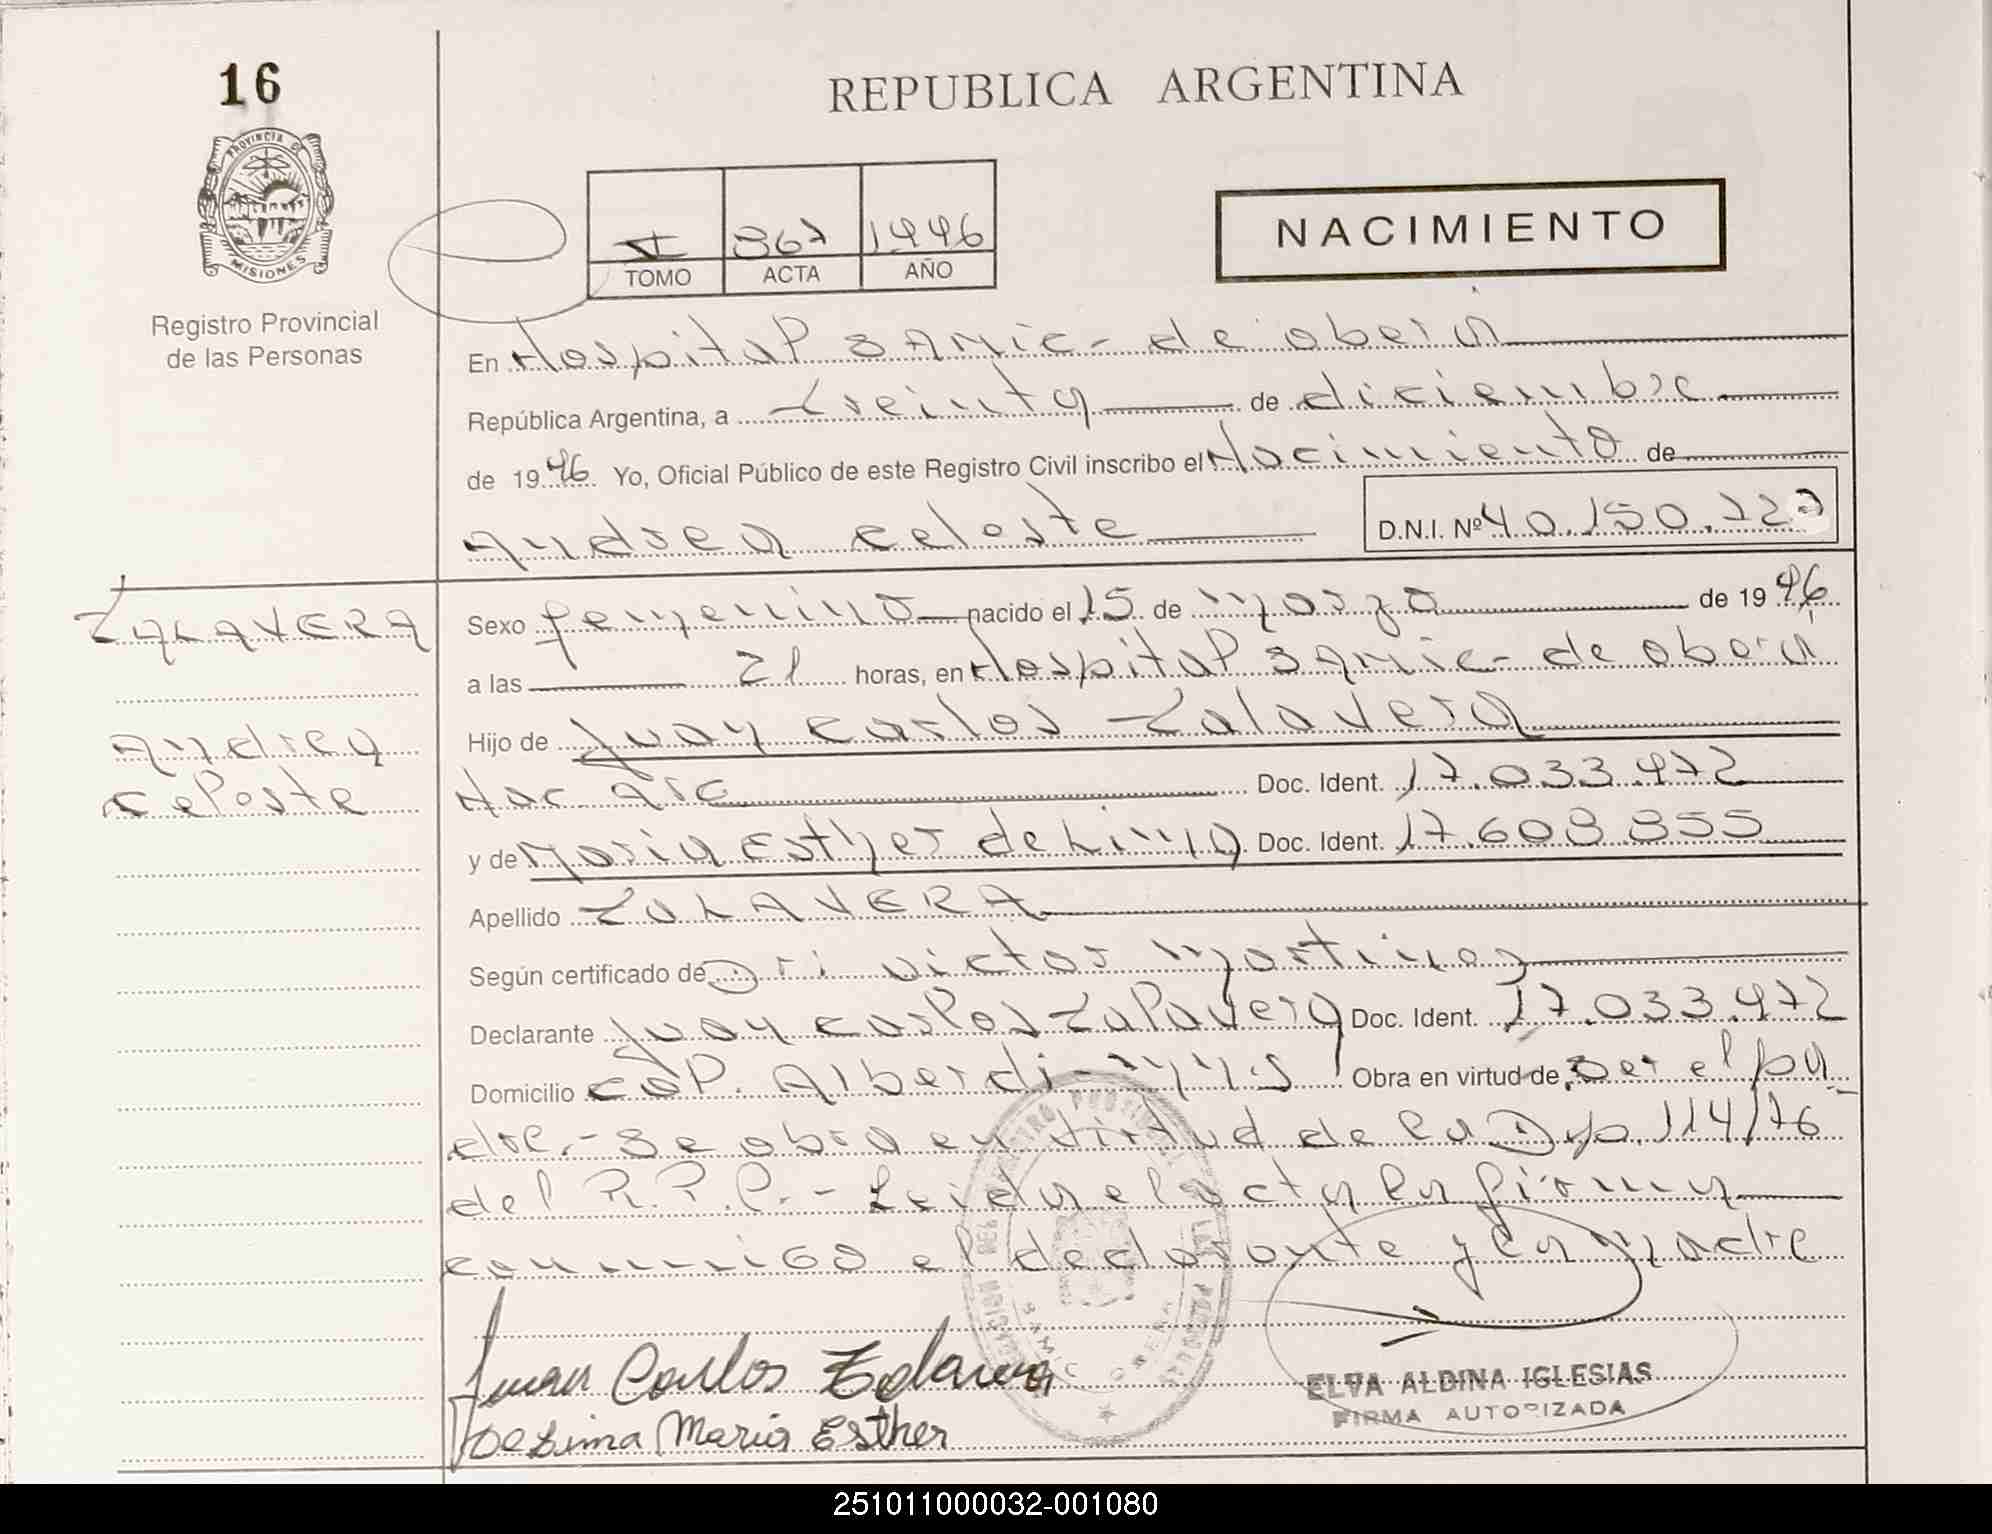 16
PROVINCIA DE
MISIONES
Registro Provincial
de las Personas
REPUBLICA ARGENTINA
867 1996
TOMO ACTA AÑO
NACIMIENTO
En Hospital SAMIC - de oberá
República Argentina, a treinta de diciembre
de 1996 Yo, Oficial Público de este Registro Civil inscribo el Nacimiento de
Andrea celeste
D.N.I. Nº 40.150.727
ZALAVERA
Andrea
celeste
Sexo femenino nacido el 15 de marzo de 1996
a las 21 horas, en Hospital SAMIC - de oberá
Hijo de Juan carlos Zalavera
Nac Arg Doc. Ident. 17.033.972
y de Maria Esther de Lima Doc. Ident. 17.608.855
Apellido ZALAVERA
Según certificado de Dr: victor martinez
Declarante Juan carlos Zalavera Doc. Ident. 17.033.972
Domicilio col. Alberdi - Obra en virtud de ser el pa
dre.- Se obra en virtud de la Dsp. 114/76
del R.P.P.- Leida el acta la firma
conmigo el declarante y la madre
Juan Carlos Zalavera
De Lima Maria Esther
ELVA ALDINA IGLESIAS
FIRMA AUTORIZADA
251011000032-001080